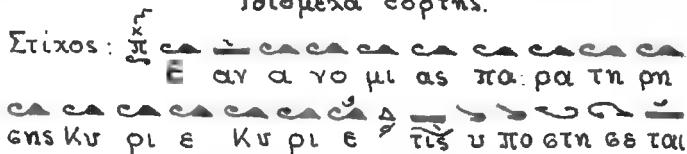 ἰδιόμελα ἑορτῆς.
Στίχος: π
Ε αν α νο μι ας πα ρα τη ρη
σης Κυ ρι ε Κυ ρι ε τίς υ πο στη σε ται